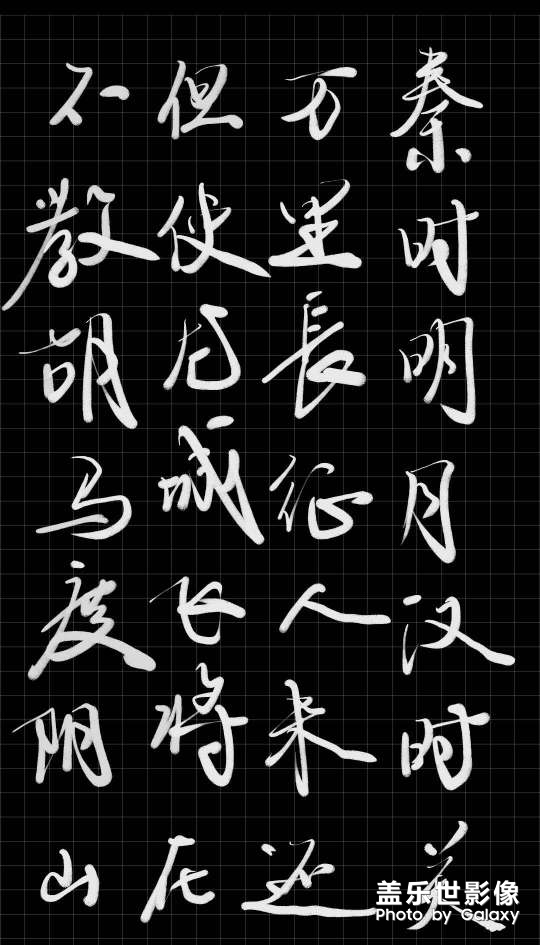 秦时明月汉时关
万里長征人未还
但使龙城飞将在
不教胡马度阴山
盖乐世影像
Photo by Galaxy